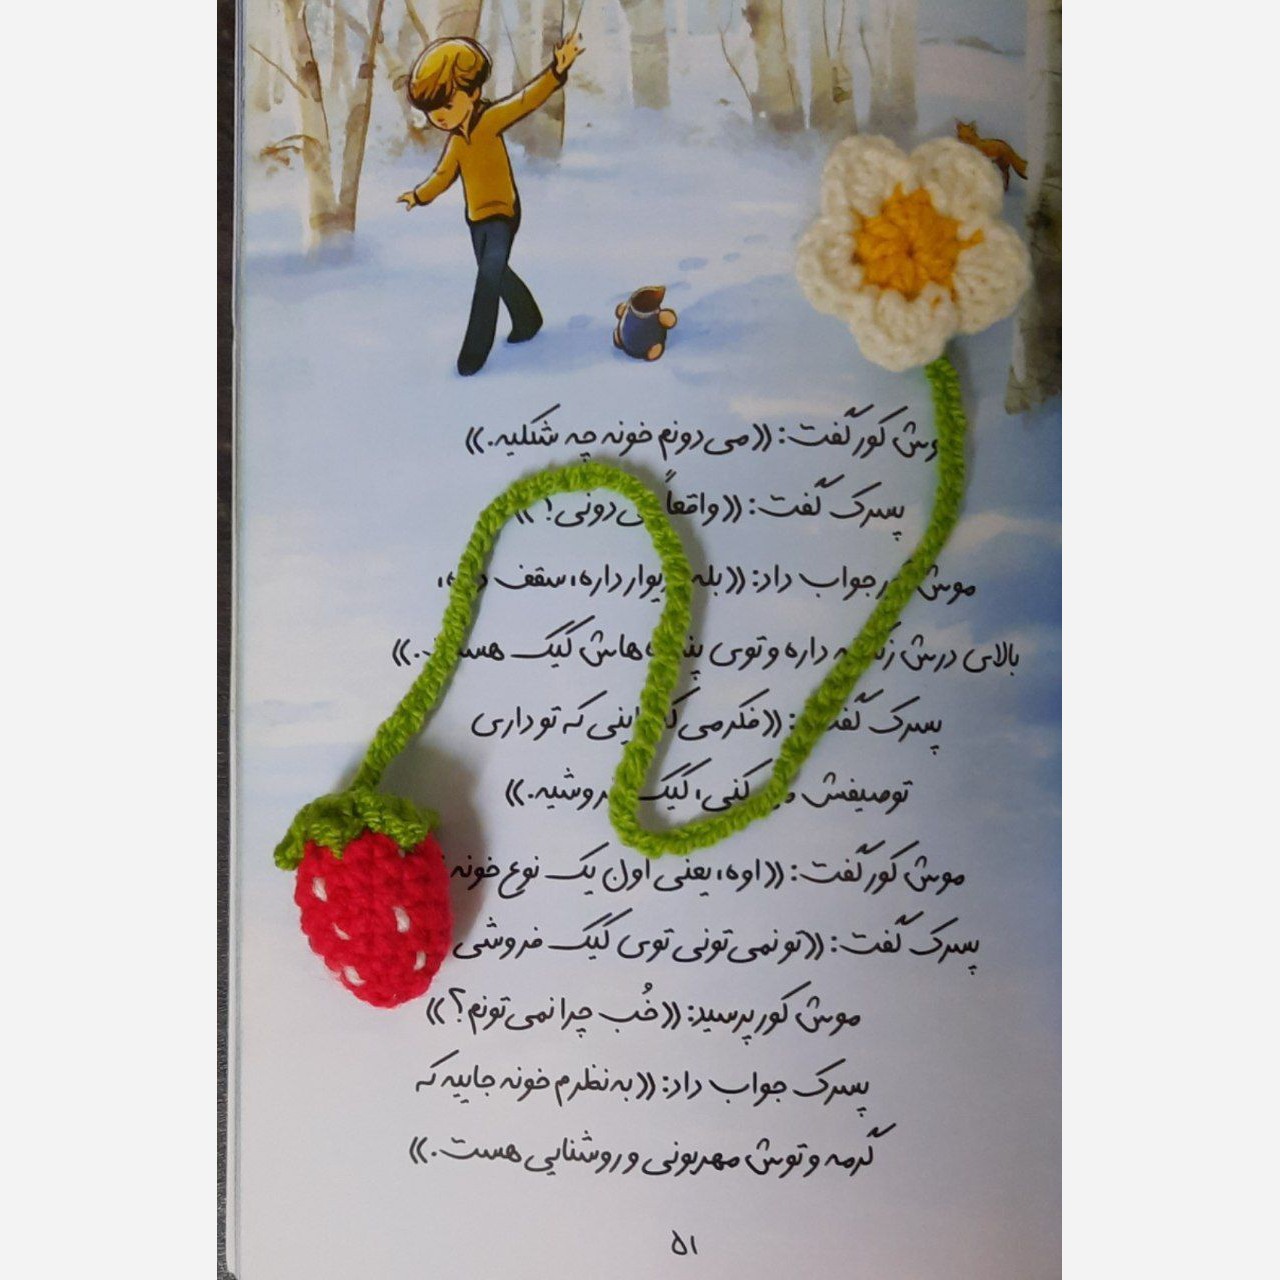 کور گفت: «می‌دونم خونه چه شکلیه.»
پسرک گفت: «واقعاً دونی؟»
موش جواب داد: «بله داره، سقف
بالای درش داره و توی هاش کیک
پسرک «فکر می اینی که تو داری
توصیفش کنی، کیک
موش کور گفت: «اوه، یعنی اول یک نوع خونه
پسرک گفت: «تو نمی‌تونی توی کیک فروشی
موش کور پرسید: «خُب چرا نمی‌تونم؟»
پسرک جواب داد: «به نظرم خونه جاییه که
گرمه و توش مهربونی و روشنایی هست.»
۵۱